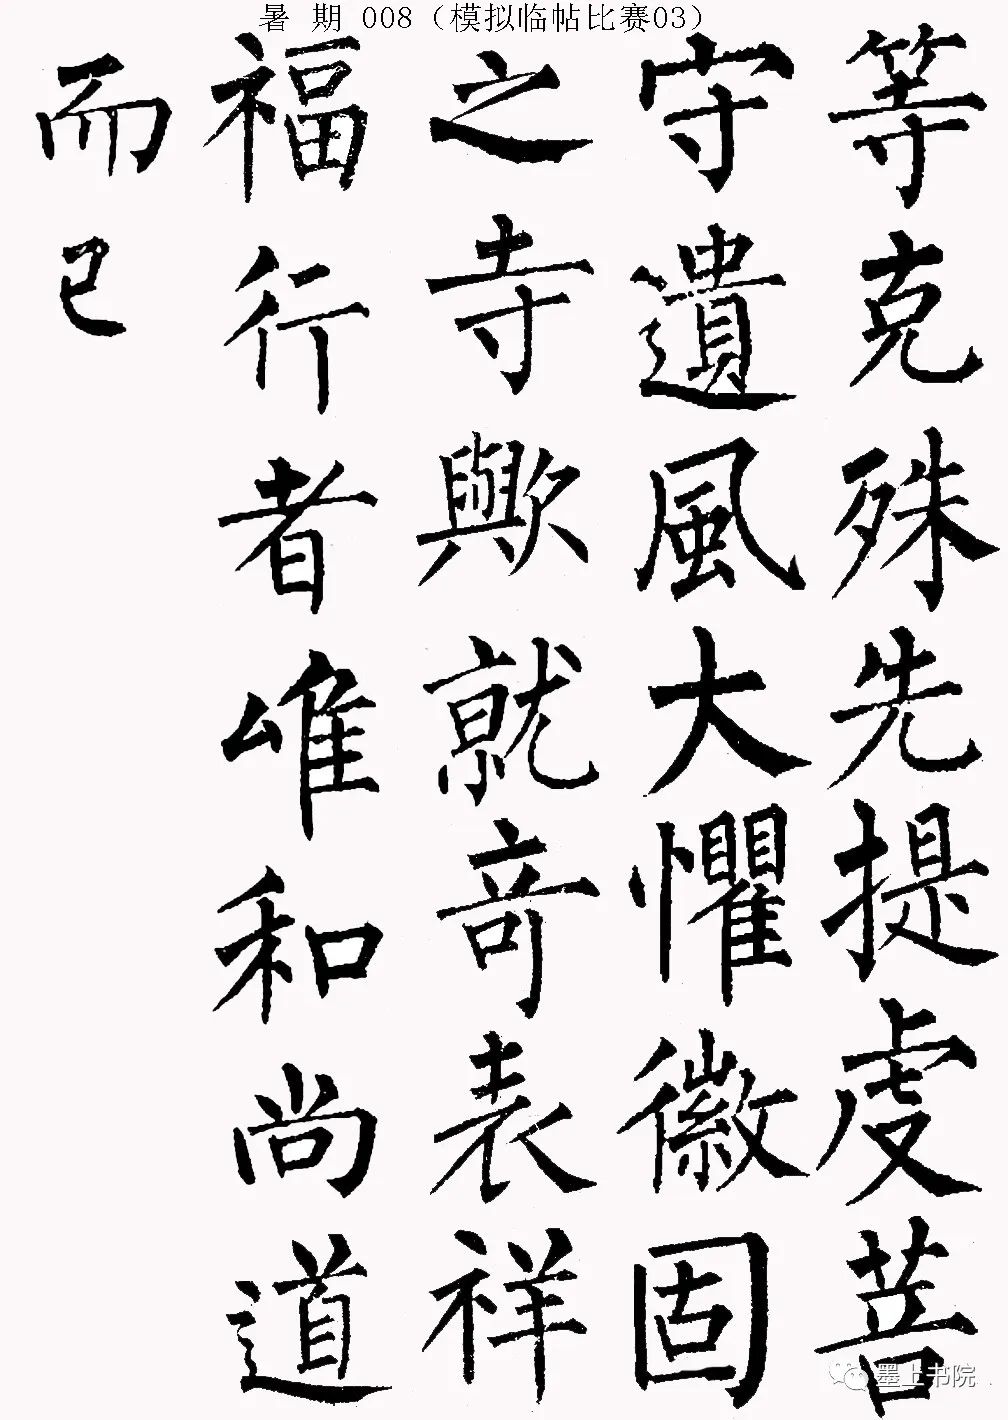 暑 期 008（模拟临帖比赛03）
等克殊先提虔菩
守遺風大懼徽固
之寺歟就竒表祥
福行者唯和尚道
而已
墨上书院